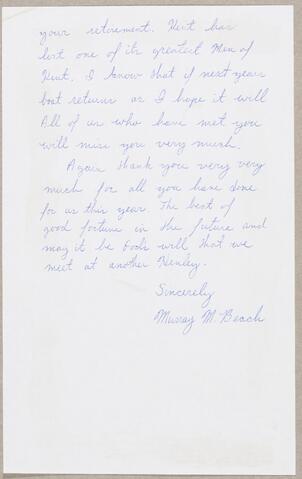 your retirement. Kent has
lost one of its greatest Men of
Kent. I know that if next years
boat returns as I hope it will
All of us who have met you
will miss you very much.
Again thank you very very
much for all you have done
for us this year. The best of
good fortune in the future and
may it be Gods will that we
meet at another Henley.
Sincerely
Murray M. Beach